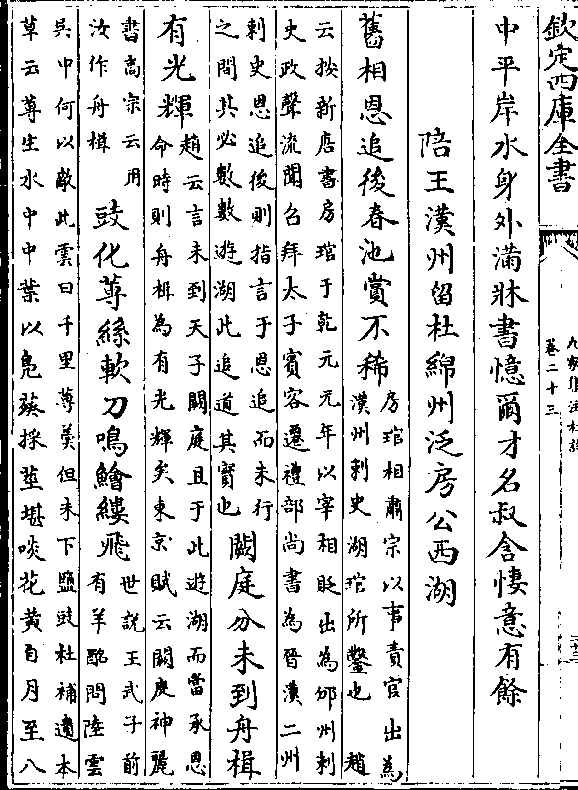 欽定四庫全書
九家集注杜詩
卷二十三
中平岸水身外滿牀書憶爾才名叔含悽意有餘
陪王漢州留杜綿州泛房公西湖
舊相恩追後春池賞不稀房琯相肅宗以事責官出為漢州刺史湖琯所鑿也趙
云按新唐書房琯于乾元元年以宰相貶出為邠州刺
史政聲流聞召拜太子賓客遷禮部尚書為晉漢二州
刺史恩追後則指言于恩追而未行
之間其必數數遊湖此追道其實也闕庭分未到舟楫
有光輝趙云言未到天子闕庭且于此遊湖而當承恩
命時則舟楫為有光輝矣東京賦云闕庭神麗
書高宗云用
汝作舟楫豉化蓴絲軟刀鳴鱠縷飛世説王武子前
有羊酪問陸雲
吳中何以敵此雲曰千里蓴羮但未下鹽豉杜補遺本
草云蓴生水中中葉以鳬葵採莖堪啖花黄白月至八